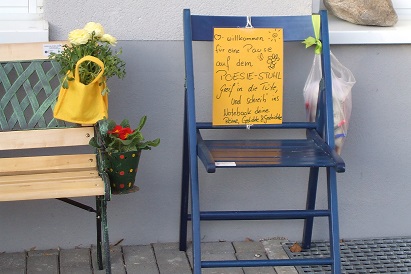 willkommen
für eine Pause
auf dem
POESIE-STUHL
greif in die Tüte,
und schreib ins
Notebook deine
Reime, Gedichte & Gedanken